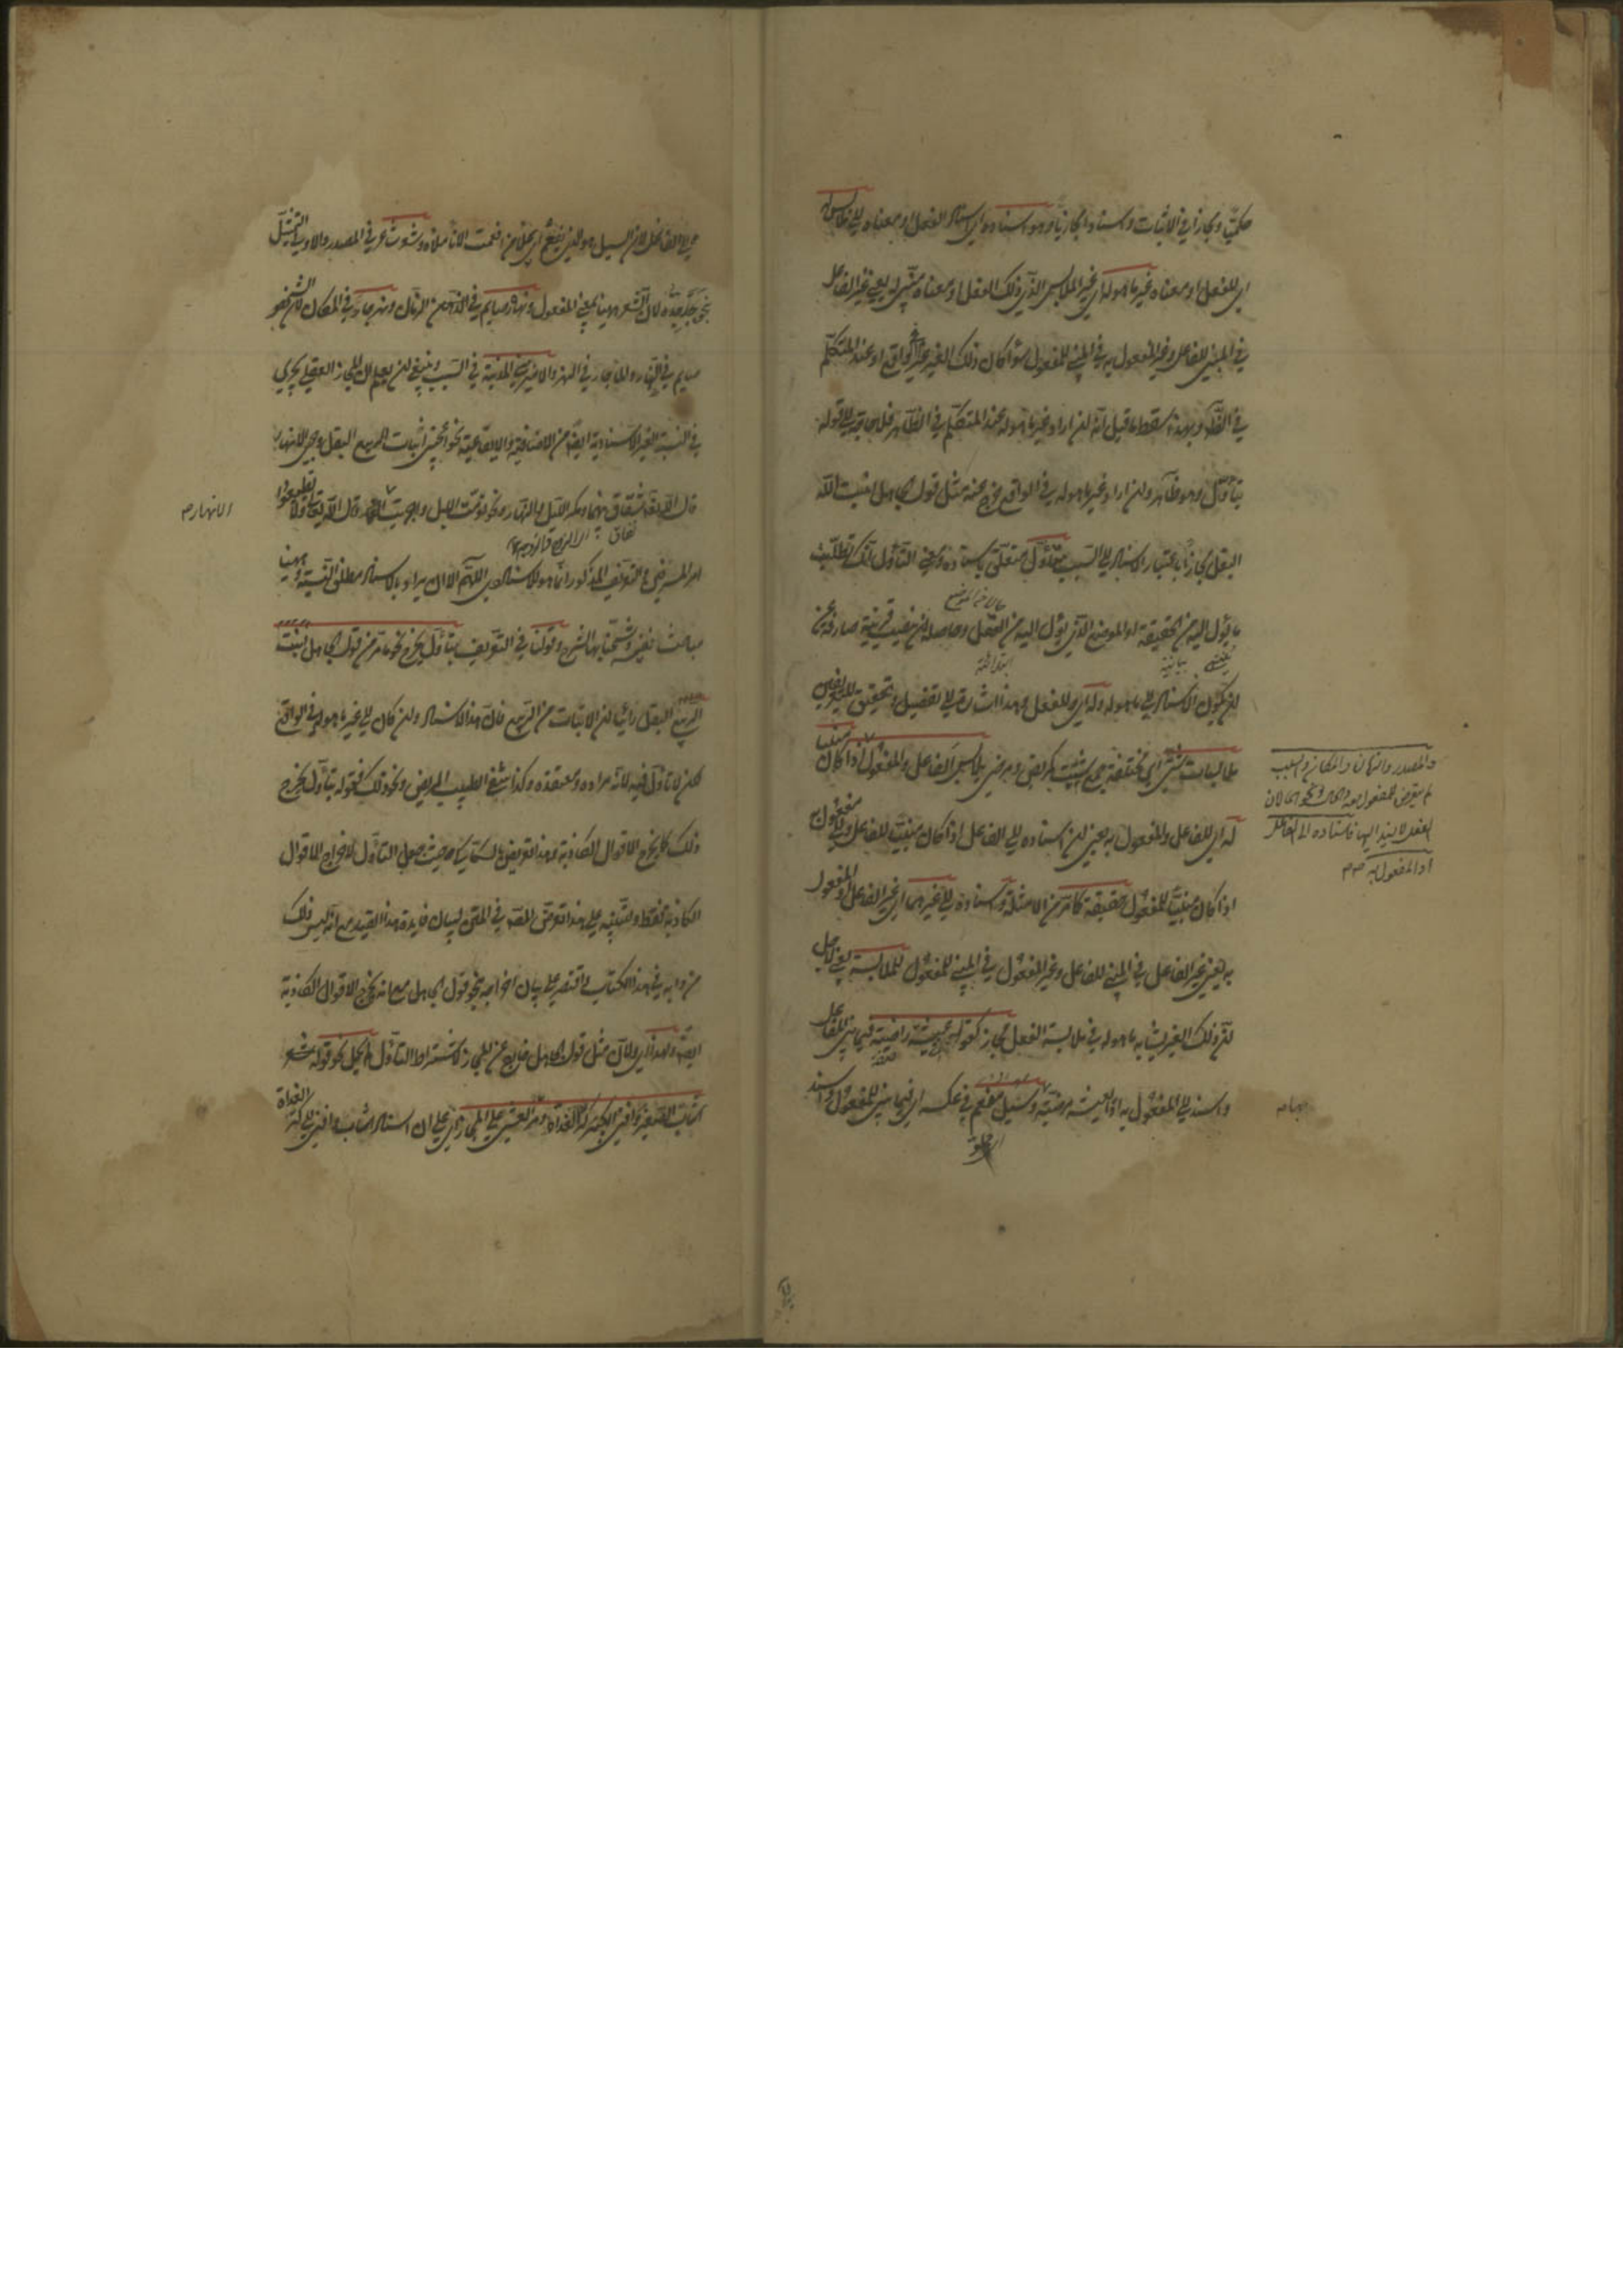 حكميا ومجازا في الاثبات واسنادا مجازيا وهو اسناده اي اسناد الفعل او معناه الى ملابس له
اي للفعل او معناه غير ما هو له اي غير الملابس الذي ذلك الفعل او معناه مبني له يعني غير الفاعل
في المبني للفاعل وغير المفعول به في المبني للمفعول سواء كان ذلك الغير غيرا في الواقع او عند المتكلم
في الظاهر وبهذا سقط ما قيل انه ان اراد غير ما هو له عند المتكلم في الظاهر فلا حاجة الى قوله
بتأول وهو ظاهر وان اراد غير ما هو له في الواقع خرج عنه مثل قول الجاهل انبت الله
البقل مجازا باعتبار الاسناد الى السبب بتأول متعلق باسناده ومعنى التأول انك تطلبت
ما يؤل اليه من الحقيقة او الموضع الذي يؤل اليه من العقل وحاصله ان ينصب قرينة صارفة عن
ان يكون الاسناد الى ما هو له وله اي وللفعل وهذا اشارة الى تفصيل وتحقيق للتعريفين
ملابسات شتى اي مختلفة جمع شتيت كمريض ومرضى يلابس الفاعل والمفعول به
والمصدر والزمان والمكان والسبب
لم يتعرض للمفعول معه والحال ونحوهما لان
الفعل لا يسند اليها فاسناده الى الفاعل
او المفعول به
اذا كان مبنيا
له اي للفاعل والمفعول به يعني ان اسناده الى الفاعل اذا كان مبنيا للفاعل والى المفعول به
اذا كان مبنيا للمفعول حقيقة كما مر من الامثلة واسناده الى غيرهما اي غير الفاعل والمفعول
به يعني غير الفاعل في المبني للفاعل وغير المفعول في المبني للمفعول للملابسة يعني لاجل
ان ذلك الغير يشابه ما هو له في ملابسة الفعل مجاز كقولهم عيشة راضية فيما بني للفاعل
واسند الى المفعول به اذ العيشة مرضية وسيل مفعم في عكسه اي فيما بني للمفعول واسند
الى الفاعل لان السيل هو الذي يفعم اي يملأ من افعمت الاناء ملأته وشعر شاعر في المصدر والاولى التمثيل
بنحو جد جده لان الشعر ههنا بمعنى المفعول ونهاره صائم في الزمان ونهر جار في المكان لان الشخص
صايم في النهار والماء جار في النهر والامير بنى المدينة في السبب وينبغي ان يعلم ان المجاز العقلي يجري
في النسبة الغير الاسنادية ايضا من الاضافية والايقاعية نحو اعجبني انبات الربيع البقل وجري الانهار
قال الله تعالى شقاق بينهما ومكر الليل والنهار ونحو نومت الليل واجريت النهر قال الله تعالى ولا تطيعوا
امر المسرفين والتعريف المذكور انما هو للاسنادي اللهم الا ان يراد بالاسناد مطلق النسبة وههنا
مباحث نفيسة وشحنا بها الشرح وقولنا في التعريف بتأول يخرج نحو ما مر من قول الجاهل انبت
الربيع البقل رائيا ان الانبات من الربيع فان هذا الاسناد وان كان الى غير ما هو له في الواقع
لكن لا تأول فيه لانه مراده ومعتقده وكذا شفى الطبيب المريض ونحو ذلك فقوله بتأول يخرج
ذلك كما يخرج الاقوال الكاذبة وهذا تعريض بالسكاكي حيث جعل التأول لاخراج الاقوال
الكاذبة فقط وللتنبيه على هذا تعرض المصنف في المتن لبيان فايدة هذا القيد مع انه ليس ذلك
من دابه في هذا الكتاب واقتصر على بيان اخراجه نحو قول الجاهل مع انه يخرج الاقوال الكاذبة
ايضا ولهذا اي ولان مثل قول الجاهل خارج عن المجاز لاشتراط التأول لم يحمل نحو قوله شعر
اشاب الصغير وافنى الكبير كر الغداة ومر العشي على المجاز اي على ان اسناد اشاب وافنى الى كر الغداة